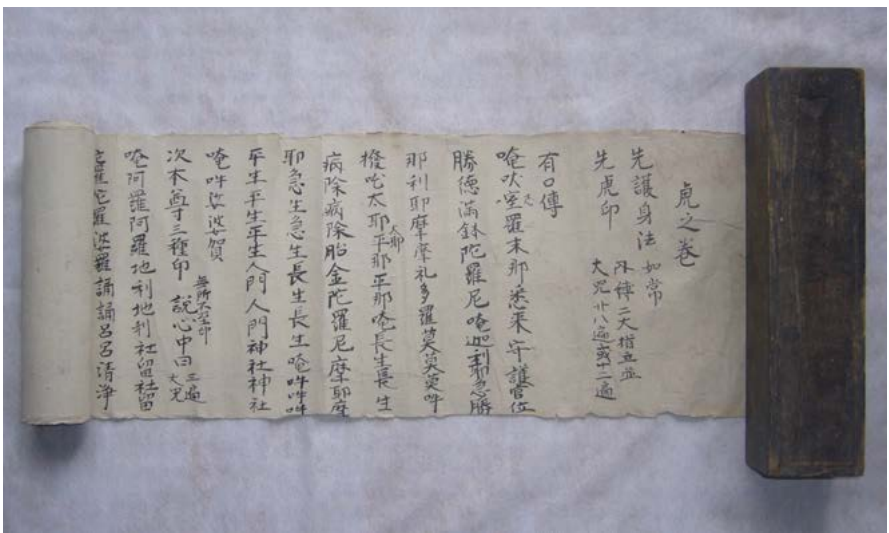 虎之巻
先護身法 如常
先虎印 外縛二大指立並
大呪廿八遍或十二遍
有口傳
唵吠羅末那悉来守護官位
勝徳満鉢陀羅尼唵迦利耶急勝
那利耶摩摩礼多羅莫莫莫吽
撥吒太耶平那平那唵長生長生
太耶
病除病除胎金陀羅尼摩耶摩
耶急生急生長生長生唵吽吽吽
平生平生平生人門人門神社神社
唵吽婆娑賀
次本尊三種印 無所不至印 説心中曰 三遍
大呪
唵阿羅阿羅地利地利社留社留
陀羅陀羅婆羅誦誦呂呂清浄